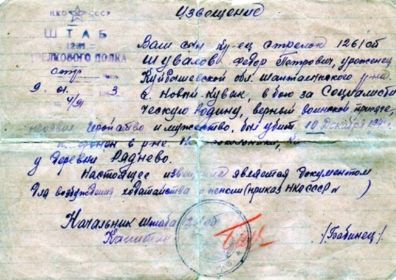 Извещение
НКО СССР
ШТАБ
1261
СТРЕЛКОВОГО ПОЛКА
Ваш сын кр-ец стрелок 1261 сп
Шувалов Федор Петрович, уроженец
Куйбышевской обл. Шенталинского р-на
с. Новый Кувак, в бою за Социалисти
ческую Родину, верный воинской присяге,
геройство и мужество, был убит 10 декабря
в р-не
у деревни Раднево.
Настоящее извещение является документом
для возбуждения ходатайства о пенсии (приказ НКО СССР №      )
Начальник штаба 1261 сп
Капитан
/Бабинец/